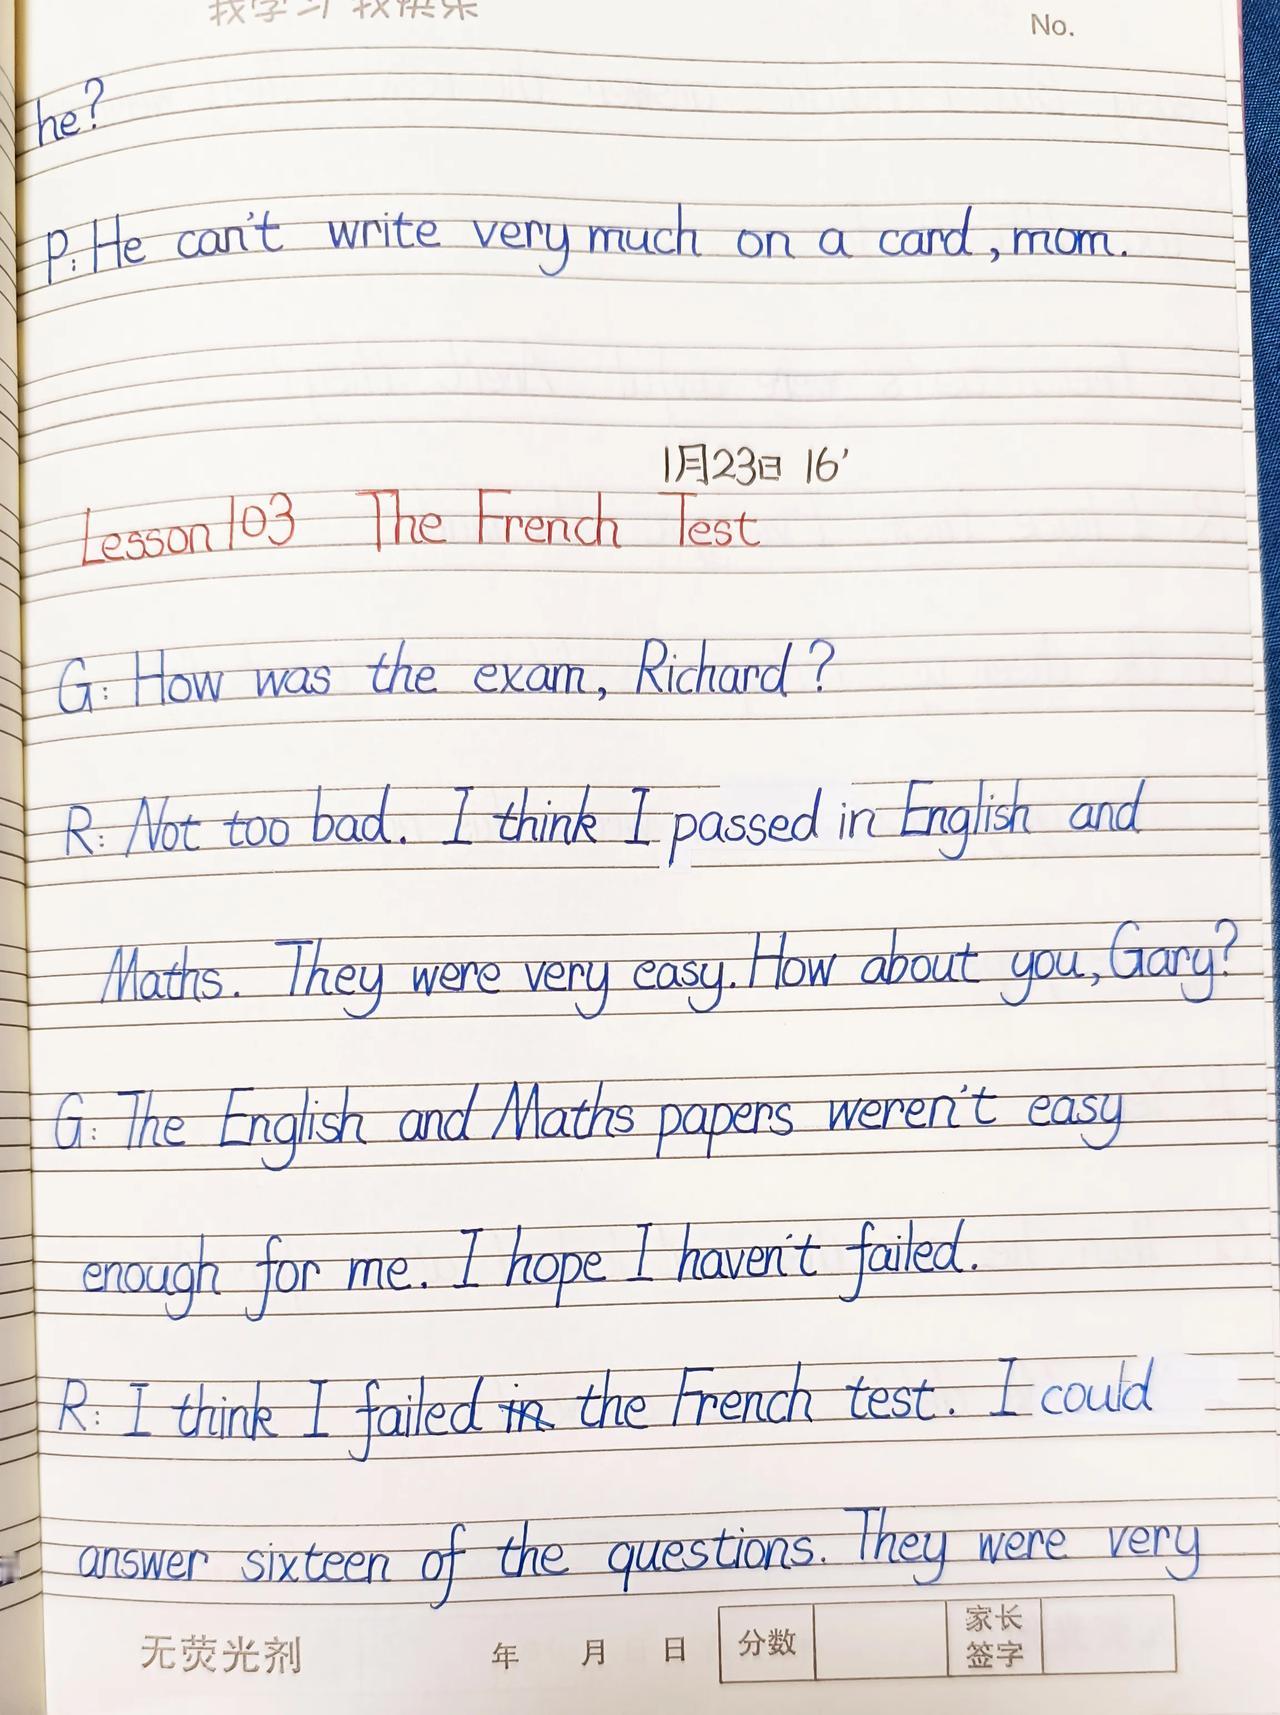 我学习 我快乐
No.
he?
P: He can't write very much on a card, mom.
1月23日 16'
Lesson 103 The French Test
G: How was the exam, Richard?
R: Not too bad. I think I passed in English and
Maths. They were very easy. How about you, Gary?
G: The English and Maths papers weren't easy
enough for me. I hope I haven't failed.
R: I think I failed in the French test. I could
answer sixteen of the questions. They were very
无荧光剂 年 月 日 分数 家长签字